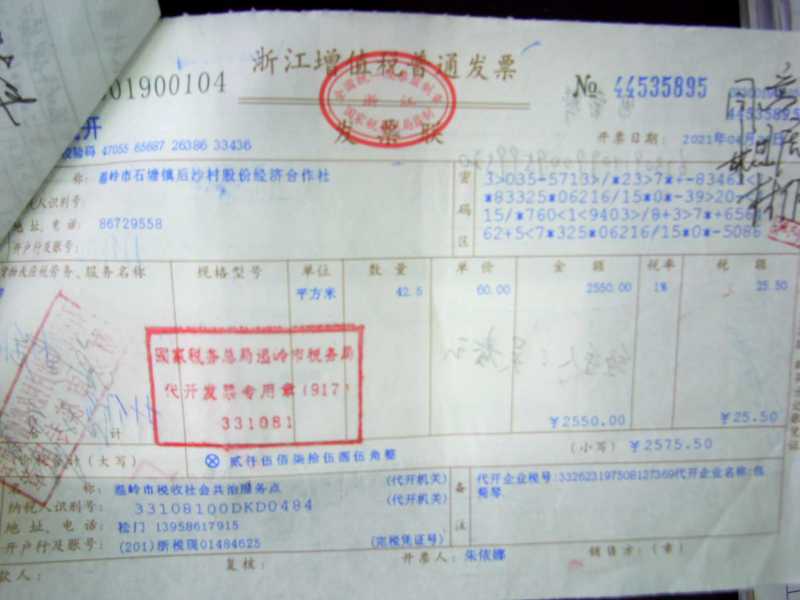 01900104
浙江增值税普通发票
发票联
№ 44535895
44535895
校验码 47055 65687 26386 33436
开票日期: 2021年04月
称: 温岭市石塘镇后沙村股份经济合作社
人识别号:
地址、电话: 86729558
开户行及账号:
密码区
3>035-5713>/*23>7*+-8346
*83325*06216/15*0*-39>20
15/*760<1<9403>/8+3>7*+656
62+5<7*325*06216/15*0*-5086
货物或应税劳务、服务名称 规格型号 单位 数量 单价 金额 税率 税额
平方米 42.5 60.00 2550.00 1% 25.50
国家税务总局温岭市税务局
代开发票专用章(917)
331081
合计 ¥2550.00 ¥25.50
价税合计(大写) ⊗ 贰仟伍佰柒拾伍圆伍角整 (小写) ¥2575.50
称: 温岭市税收社会共治服务点 (代开机关)
纳税人识别号: 33108100DKD0484 (代开机关)
地址、电话: 松门 13958617915
开户行及账号: (201)浙税现01484625 (完税凭证号)
备注
代开企业税号:332623197508127369代开企业名称:
菊琴
款人: 复核: 开票人: 朱依娜 销售方:(章)